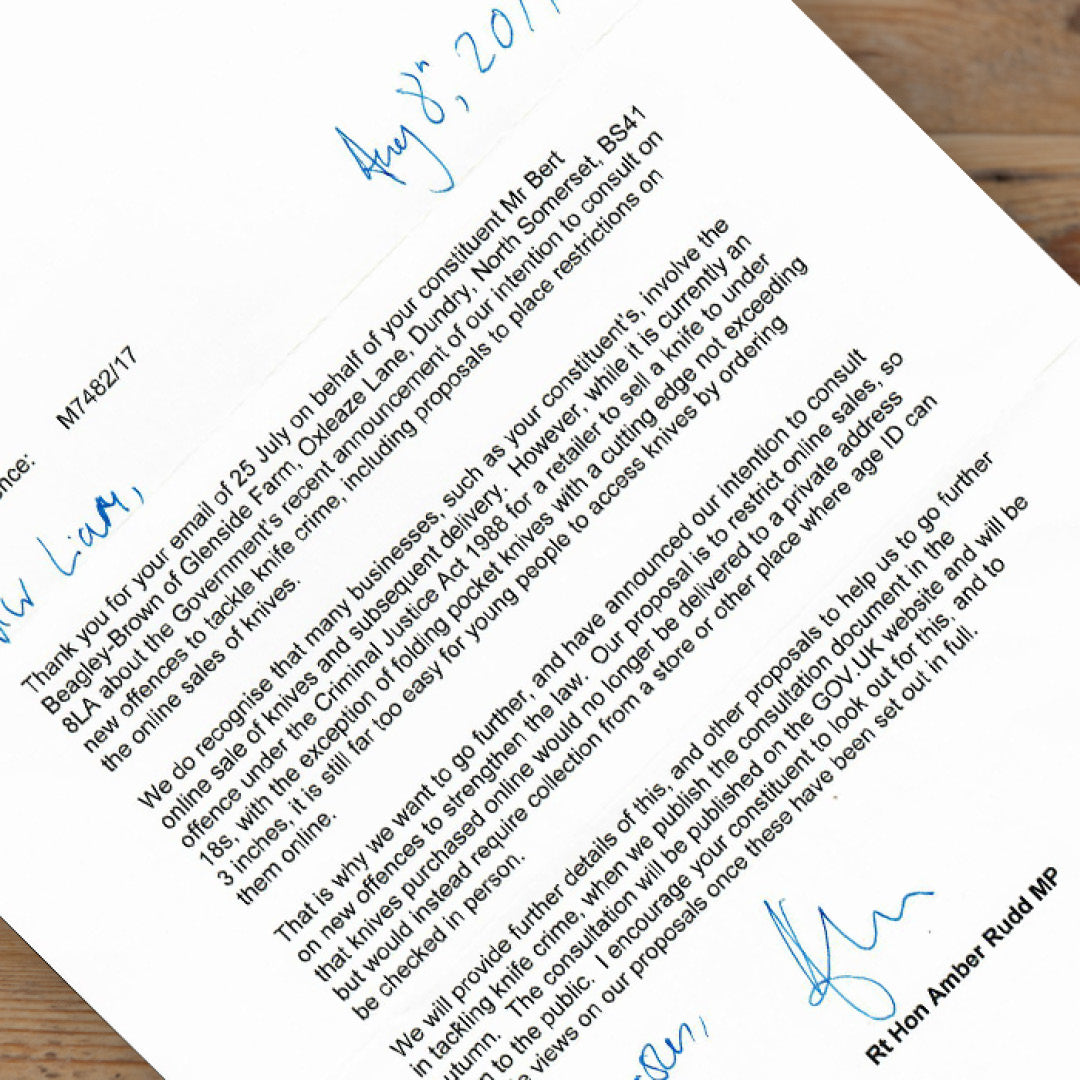 Aug 8th, 201
M7482/17
Liam,
Thank you for your email of 25 July on behalf of your constituent Mr Bert
Beagley-Brown of Glenside Farm, Oxleaze Lane, Dundry, North Somerset, BS41
8LA about the Government's recent announcement of our intention to consult on
new offences to tackle knife crime, including proposals to place restrictions on
the online sales of knives.
We do recognise that many businesses, such as your constituent's, involve the
online sale of knives and subsequent delivery. However, while it is currently an
offence under the Criminal Justice Act 1988 for a retailer to sell a knife to under
18s, with the exception of folding pocket knives with a cutting edge not exceeding
3 inches, it is still far too easy for young people to access knives by ordering
them online.
That is why we want to go further, and have announced our intention to consult
on new offences to strengthen the law. Our proposal is to restrict online sales, so
that knives purchased online would no longer be delivered to a private address
but would instead require collection from a store or other place where age ID can
be checked in person.
We will provide further details of this, and other proposals to help us to go further
in tackling knife crime, when we publish the consultation document in the
utumn. The consultation will be published on the GOV.UK website and will be
n to the public. I encourage your constituent to look out for this, and to
e views on our proposals once these have been set out in full.
Rt Hon Amber Rudd MP